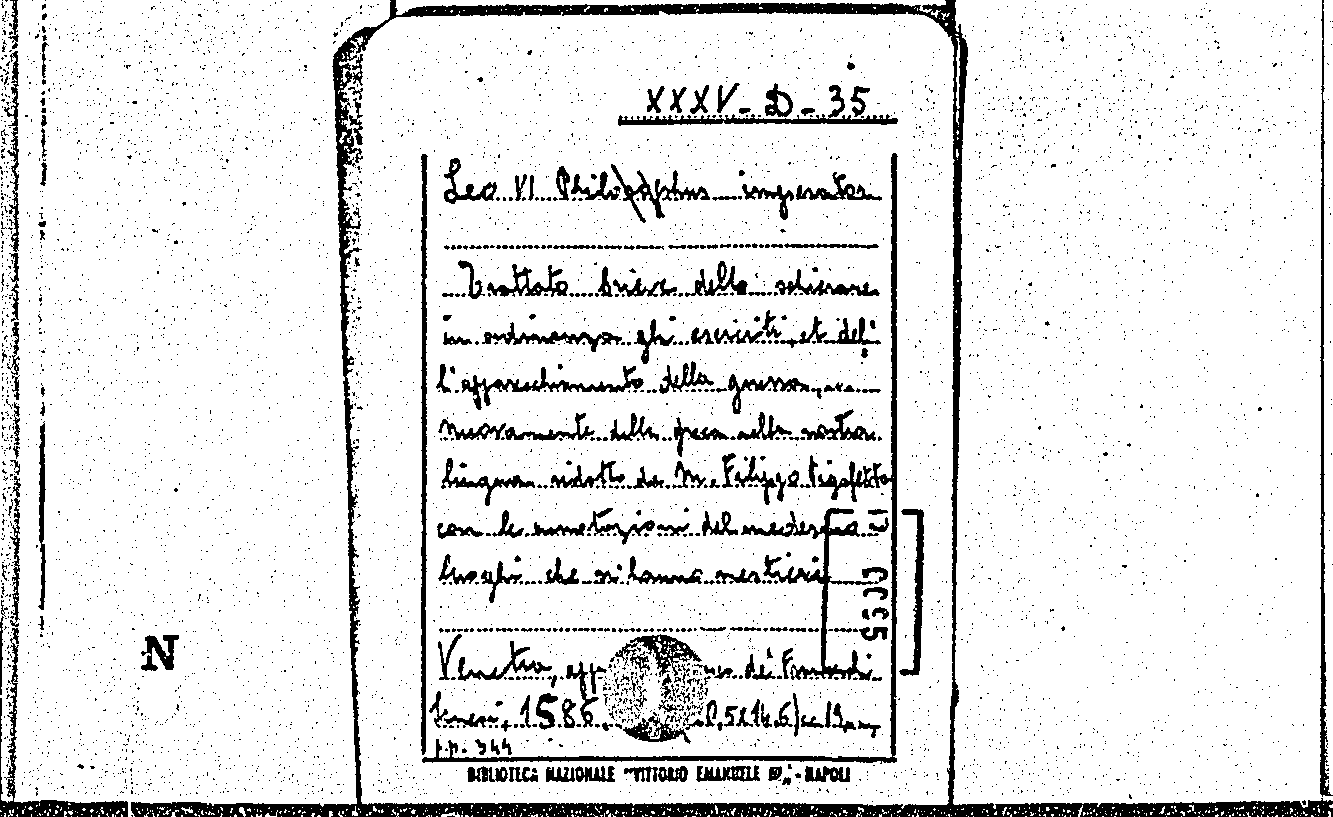 XXXV-D-35
Leo VI Philosophus imperator
Trattato brieve dello schierare
in ordinanza gli eserciti, et del
l'apparecchiamento della guerra,
nuovamente dalla greca nella nostra
lingua ridotto da M. Filippo Pigafetta
con le annotazioni del medesimo
luoghi che vi hanno mestieri
Venetia, dei Franceschi
1586
p.p. 344
BIBLIOTECA NAZIONALE "VITTORIO EMANUELE III" - NAPOLI
N